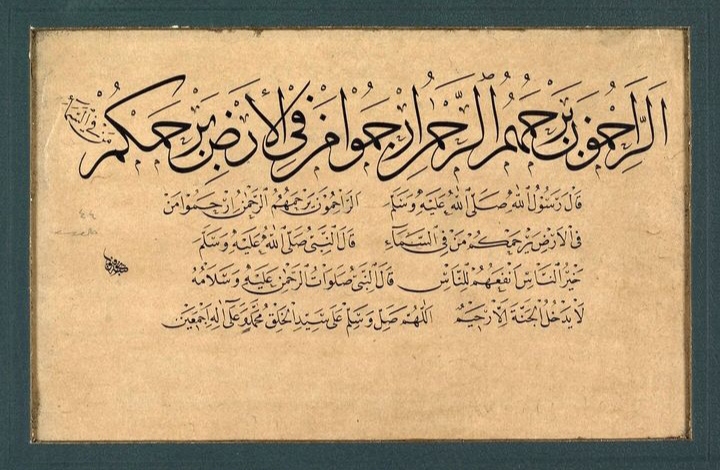 الراحمون يرحمهم الرحمن ارحموا من في الأرض يرحمكم
من في السماء
قال رسول الله صلى الله عليه وسلم الراحمون يرحمهم الرحمن ارحموا من
في الارض يرحمكم من في السماء قال النبي صلى الله عليه وسلم
خير الناس انفعهم للناس قال النبي صلوات الرحمن عليه وسلامه
لا يدخل الجنة الا رحيم اللهم صل وسلم على سيد الخلق محمد وعلى اله اجمعين